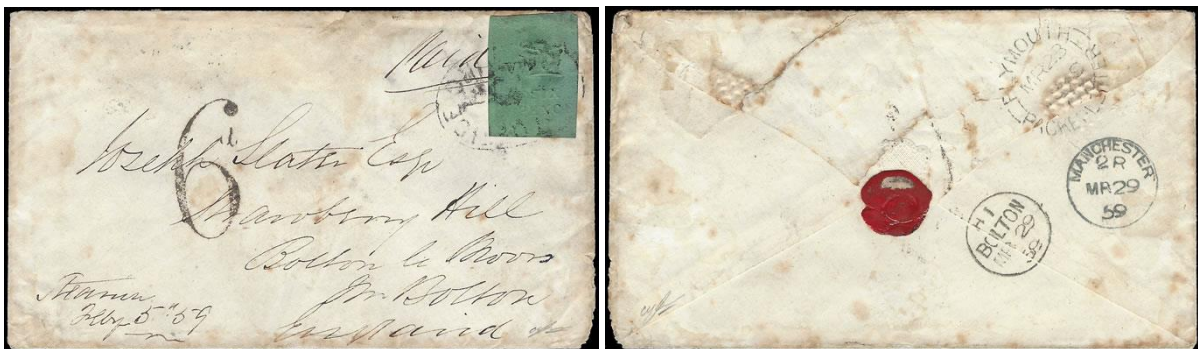 Paid
6d
Joseph Slater Esq
Hill
Bolton le Moors
Bolton
England
Steamer
Feby 5th 59
PLYMOUTH
MR 28
PACKET LETTER
MANCHESTER
2R
MR 29
59
H I
BOLTON
MR 29
59